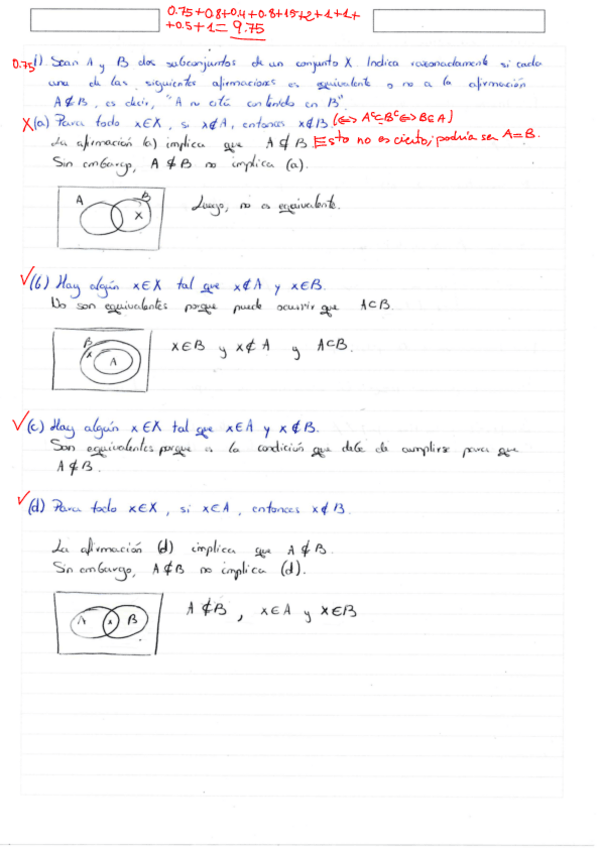 0.75+0.8+0.4+0.8+1.5+2+1+1+
+0.5+1= 9.75
0.75 1) Sean A y B dos subconjuntos de un conjunto X. Indica razonadamente si cada
una de las siguientes afirmaciones es equivalente o no a la afirmación
A⊄B, es decir, "A no está contenido en B".
X (a) Para todo x∈X, si x∉A, entonces x∉B. (⇔ A^c⊆B^c ⇔ B⊆A)
La afirmación (a) implica que A⊄B Esto no es cierto, podría ser A=B.
Sin embargo, A⊄B no implica (a).
A B x
Luego, no es equivalente.
✓ (b) Hay algún x∈X tal que x∉A y x∈B.
No son equivalentes porque puede ocurrir que A⊂B.
B x A
x∈B y x∉A y A⊂B.
✓ (c) Hay algún x∈X tal que x∈A y x∉B.
Son equivalentes porque es la condición que debe de cumplirse para que
A⊄B.
✓ (d) Para todo x∈X, si x∈A, entonces x∉B.
La afirmación (d) implica que A⊄B.
Sin embargo, A⊄B no implica (d).
A x B
A⊄B, x∈A y x∈B